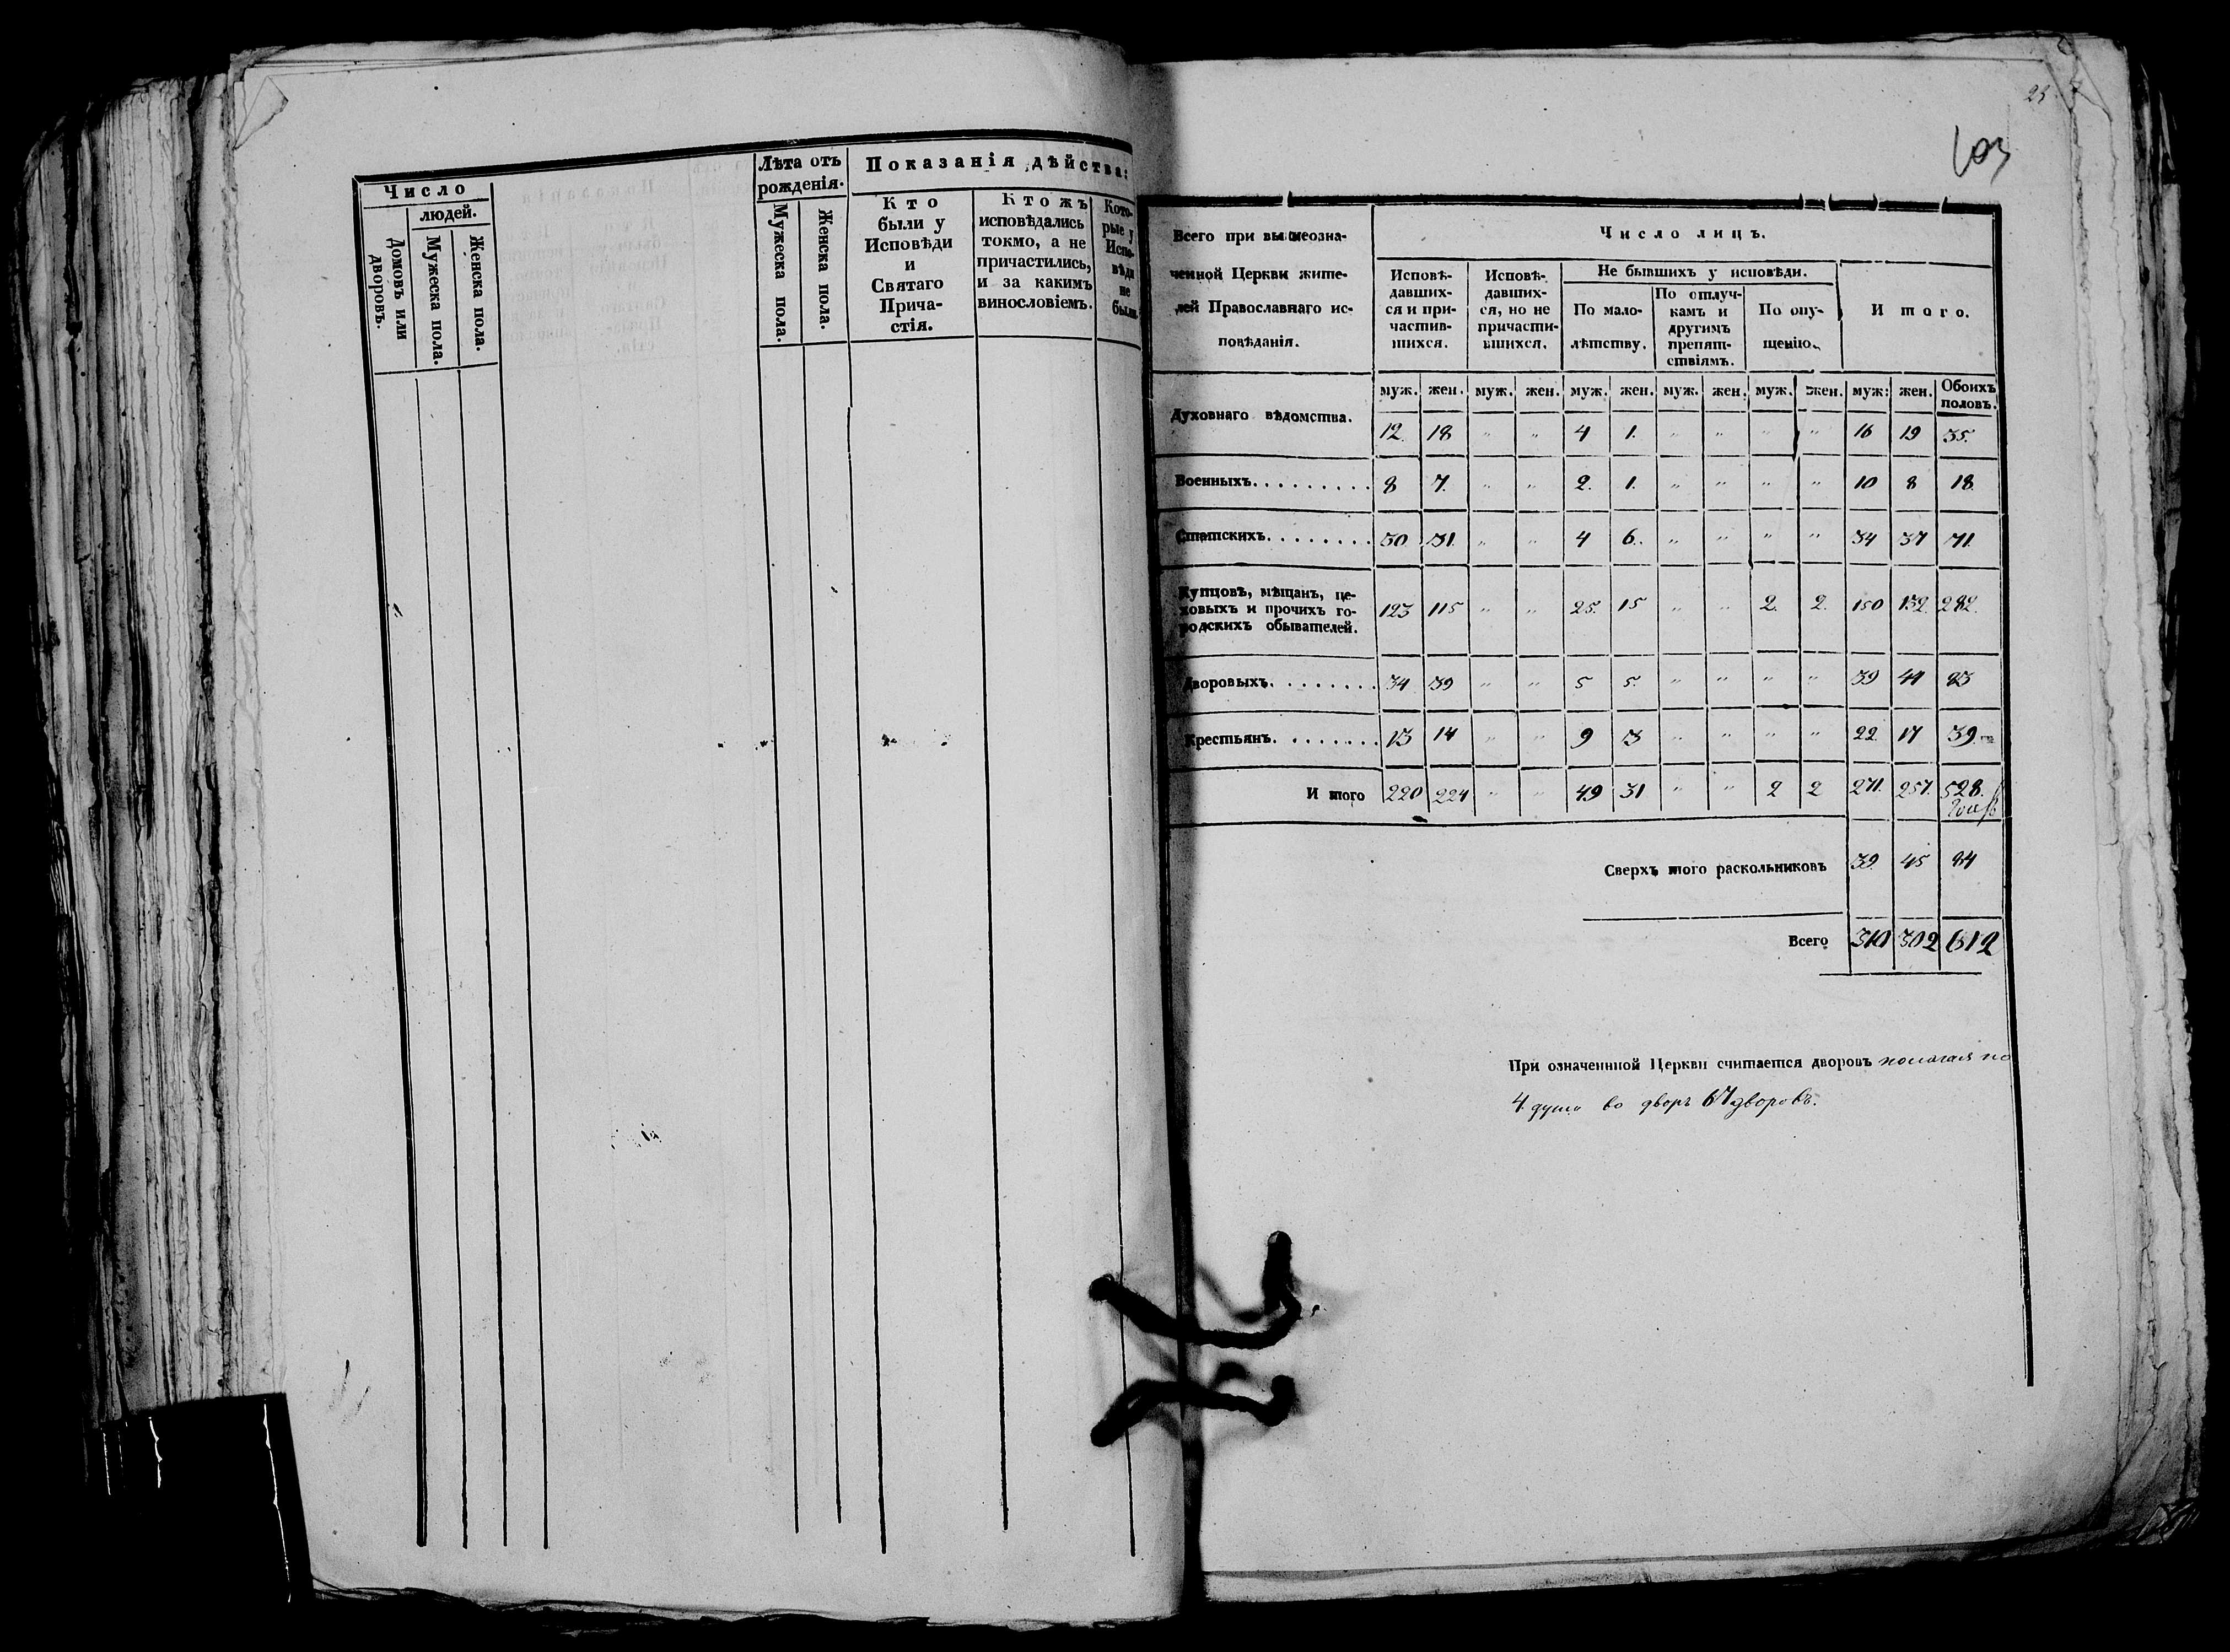 Число
людей.
Домовъ или дворовъ.
Мужеска пола.
Женска пола.
Лѣта отъ рожденія.
Мужеска пола.
Женска пола.
Показанія дѣйства:
Кто
были у
Исповѣди
и
Святаго
Прича-
стія.
Ктожъ
исповѣдались
токмо, а не
причастились,
и за какимъ
винословіемъ.
Кото-
рые у
Испо-
вѣди
не
были.
25
103
Всего при вышеозна-
ченной Церкви жите-
лей Православнаго ис-
повѣданія.
Число лицъ.
Исповѣ-
давших-
ся и при-
частив-
шихся.
Исповѣ-
давших-
ся, но не
причасти-
вшихся.
Не бывшихъ у исповѣди.
По мало-
лѣтству.
По отлуч-
камъ и
другимъ
препят-
ствіямъ.
По опу-
щенію.
Итого.
муж. жен. муж. жен. муж. жен. муж. жен. муж. жен. муж: жен. Обоихъ половъ.
Духовнаго вѣдомства. 12. 18 " " 4 1. " " " " 16 19 35.
Военныхъ......... 8 7. " " 2. 1. " " " " 10 8 18.
Статскихъ........ 30. 31. " " 4 6. " " " " 34 37 71.
Купцовъ, мѣщанъ, це-
ховыхъ и прочихъ го-
родскихъ обывателей. 123 115 " " 25. 15 " " 2. 2. 150 132 282.
Дворовыхъ........ 34 39 " " 5 5. " " " " 39 44 83
Крестьянъ........ 13 14 " " 9 3 " " " " 22. 17 39.
Итого 220 224 " " 49 31 " " 2 2 271. 257. 528.
Сверхъ того раскольниковъ 39. 45 84
Всего 310 302 612
При означеннной Церкви считается дворовъ полагая по
4 души во дворъ 67 дворовъ.